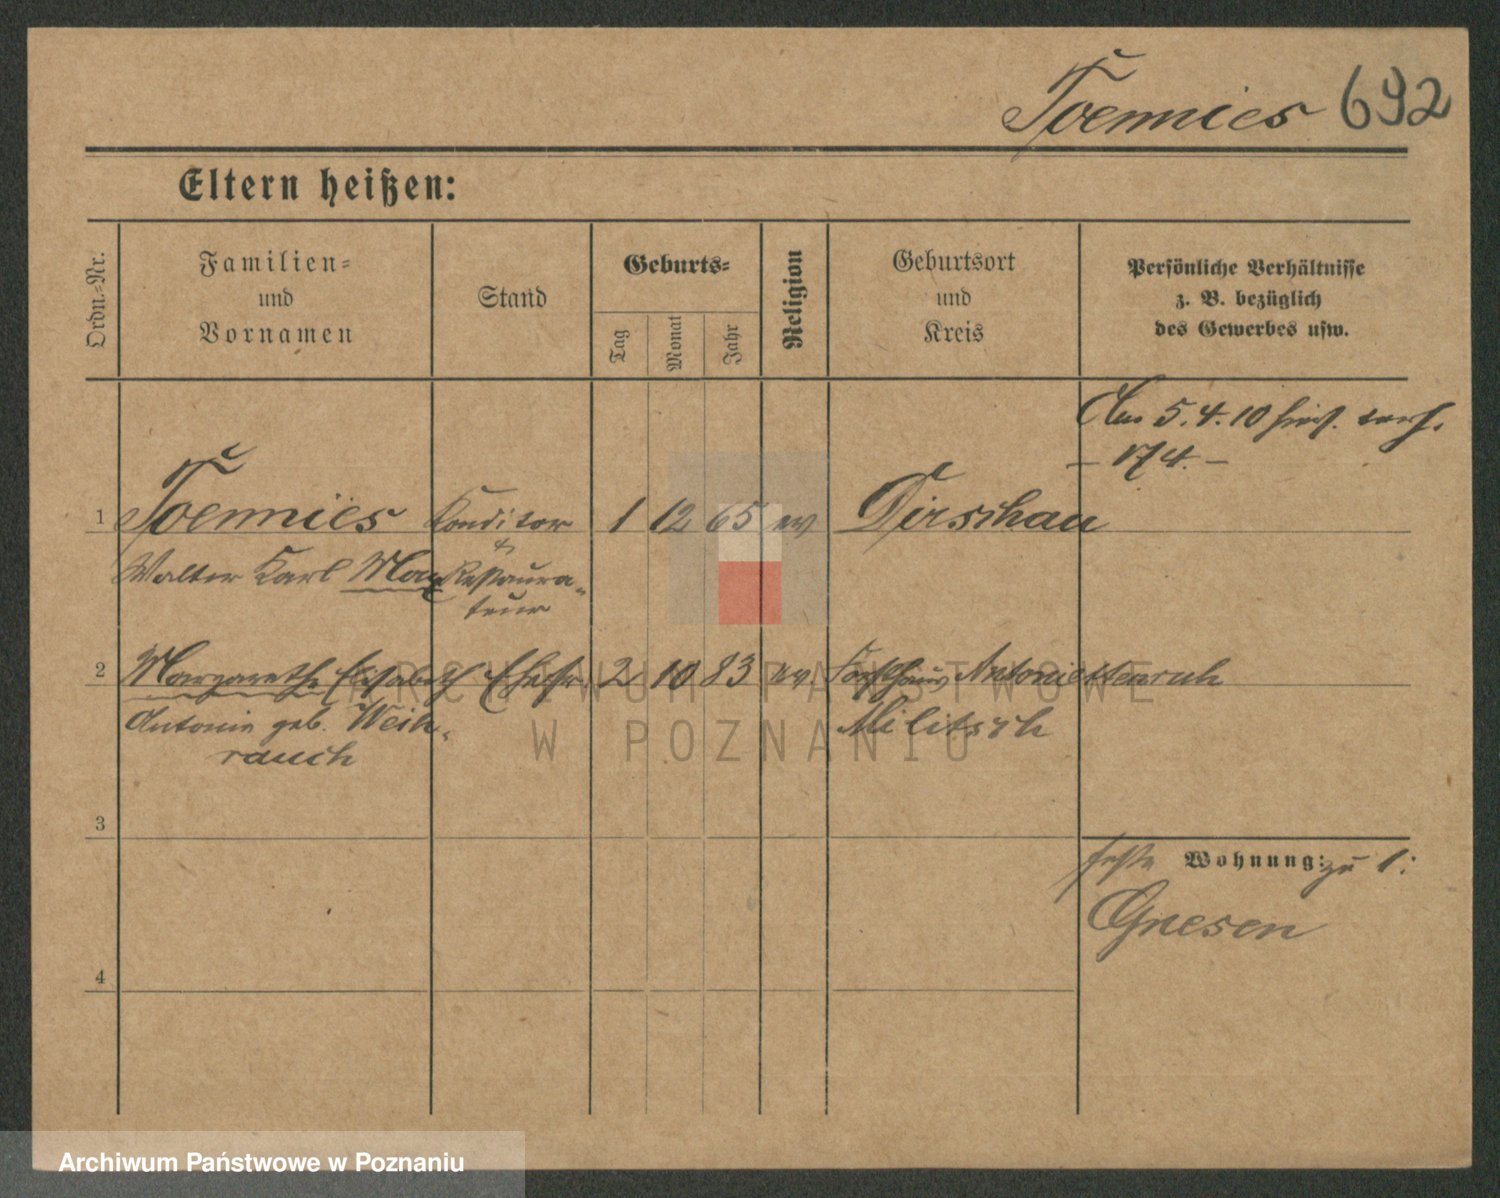 Toennies 692
Eltern heißen:
Ordn.-Nr.
Familien-
und
Vornamen
Stand
Geburts-
Tag
Monat
Jahr
Religion
Geburtsort
und
Kreis
Persönliche Verhältnisse
z. B. bezüglich
des Gewerbes usw.
Am 5.4.10 hies. verh.
- 174. -
1 Toennies Konditor 1 12 65 ev Dirschau
&
Walter Karl Max Restaura-
teur
2 Margarethe Elisabeth Ehefr. 2 10 83 ev. Forsthaus Antoniettenruh
Antonie geb. Weih- Militsch
rauch
3
feste Wohnung: zu 1:
Gnesen
4
ARCHIWUM PAŃSTWOWE
W POZNANIU
Archiwum Państwowe w Poznaniu